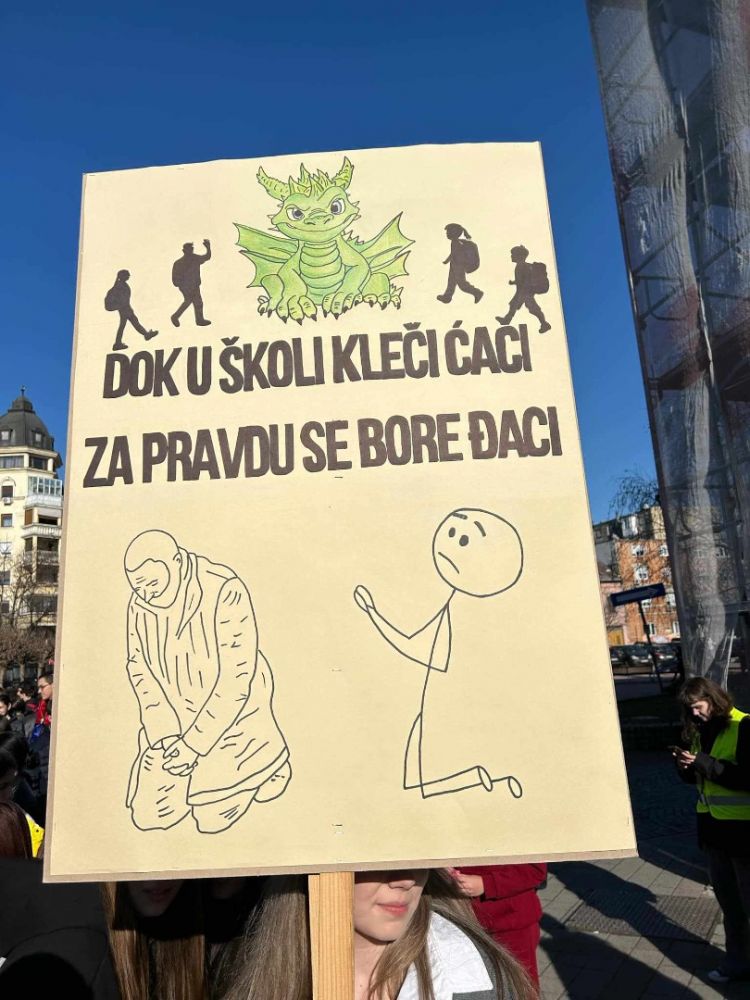 DOK U ŠKOLI KLEČI ĆACI
ZA PRAVDU SE BORE ĐACI